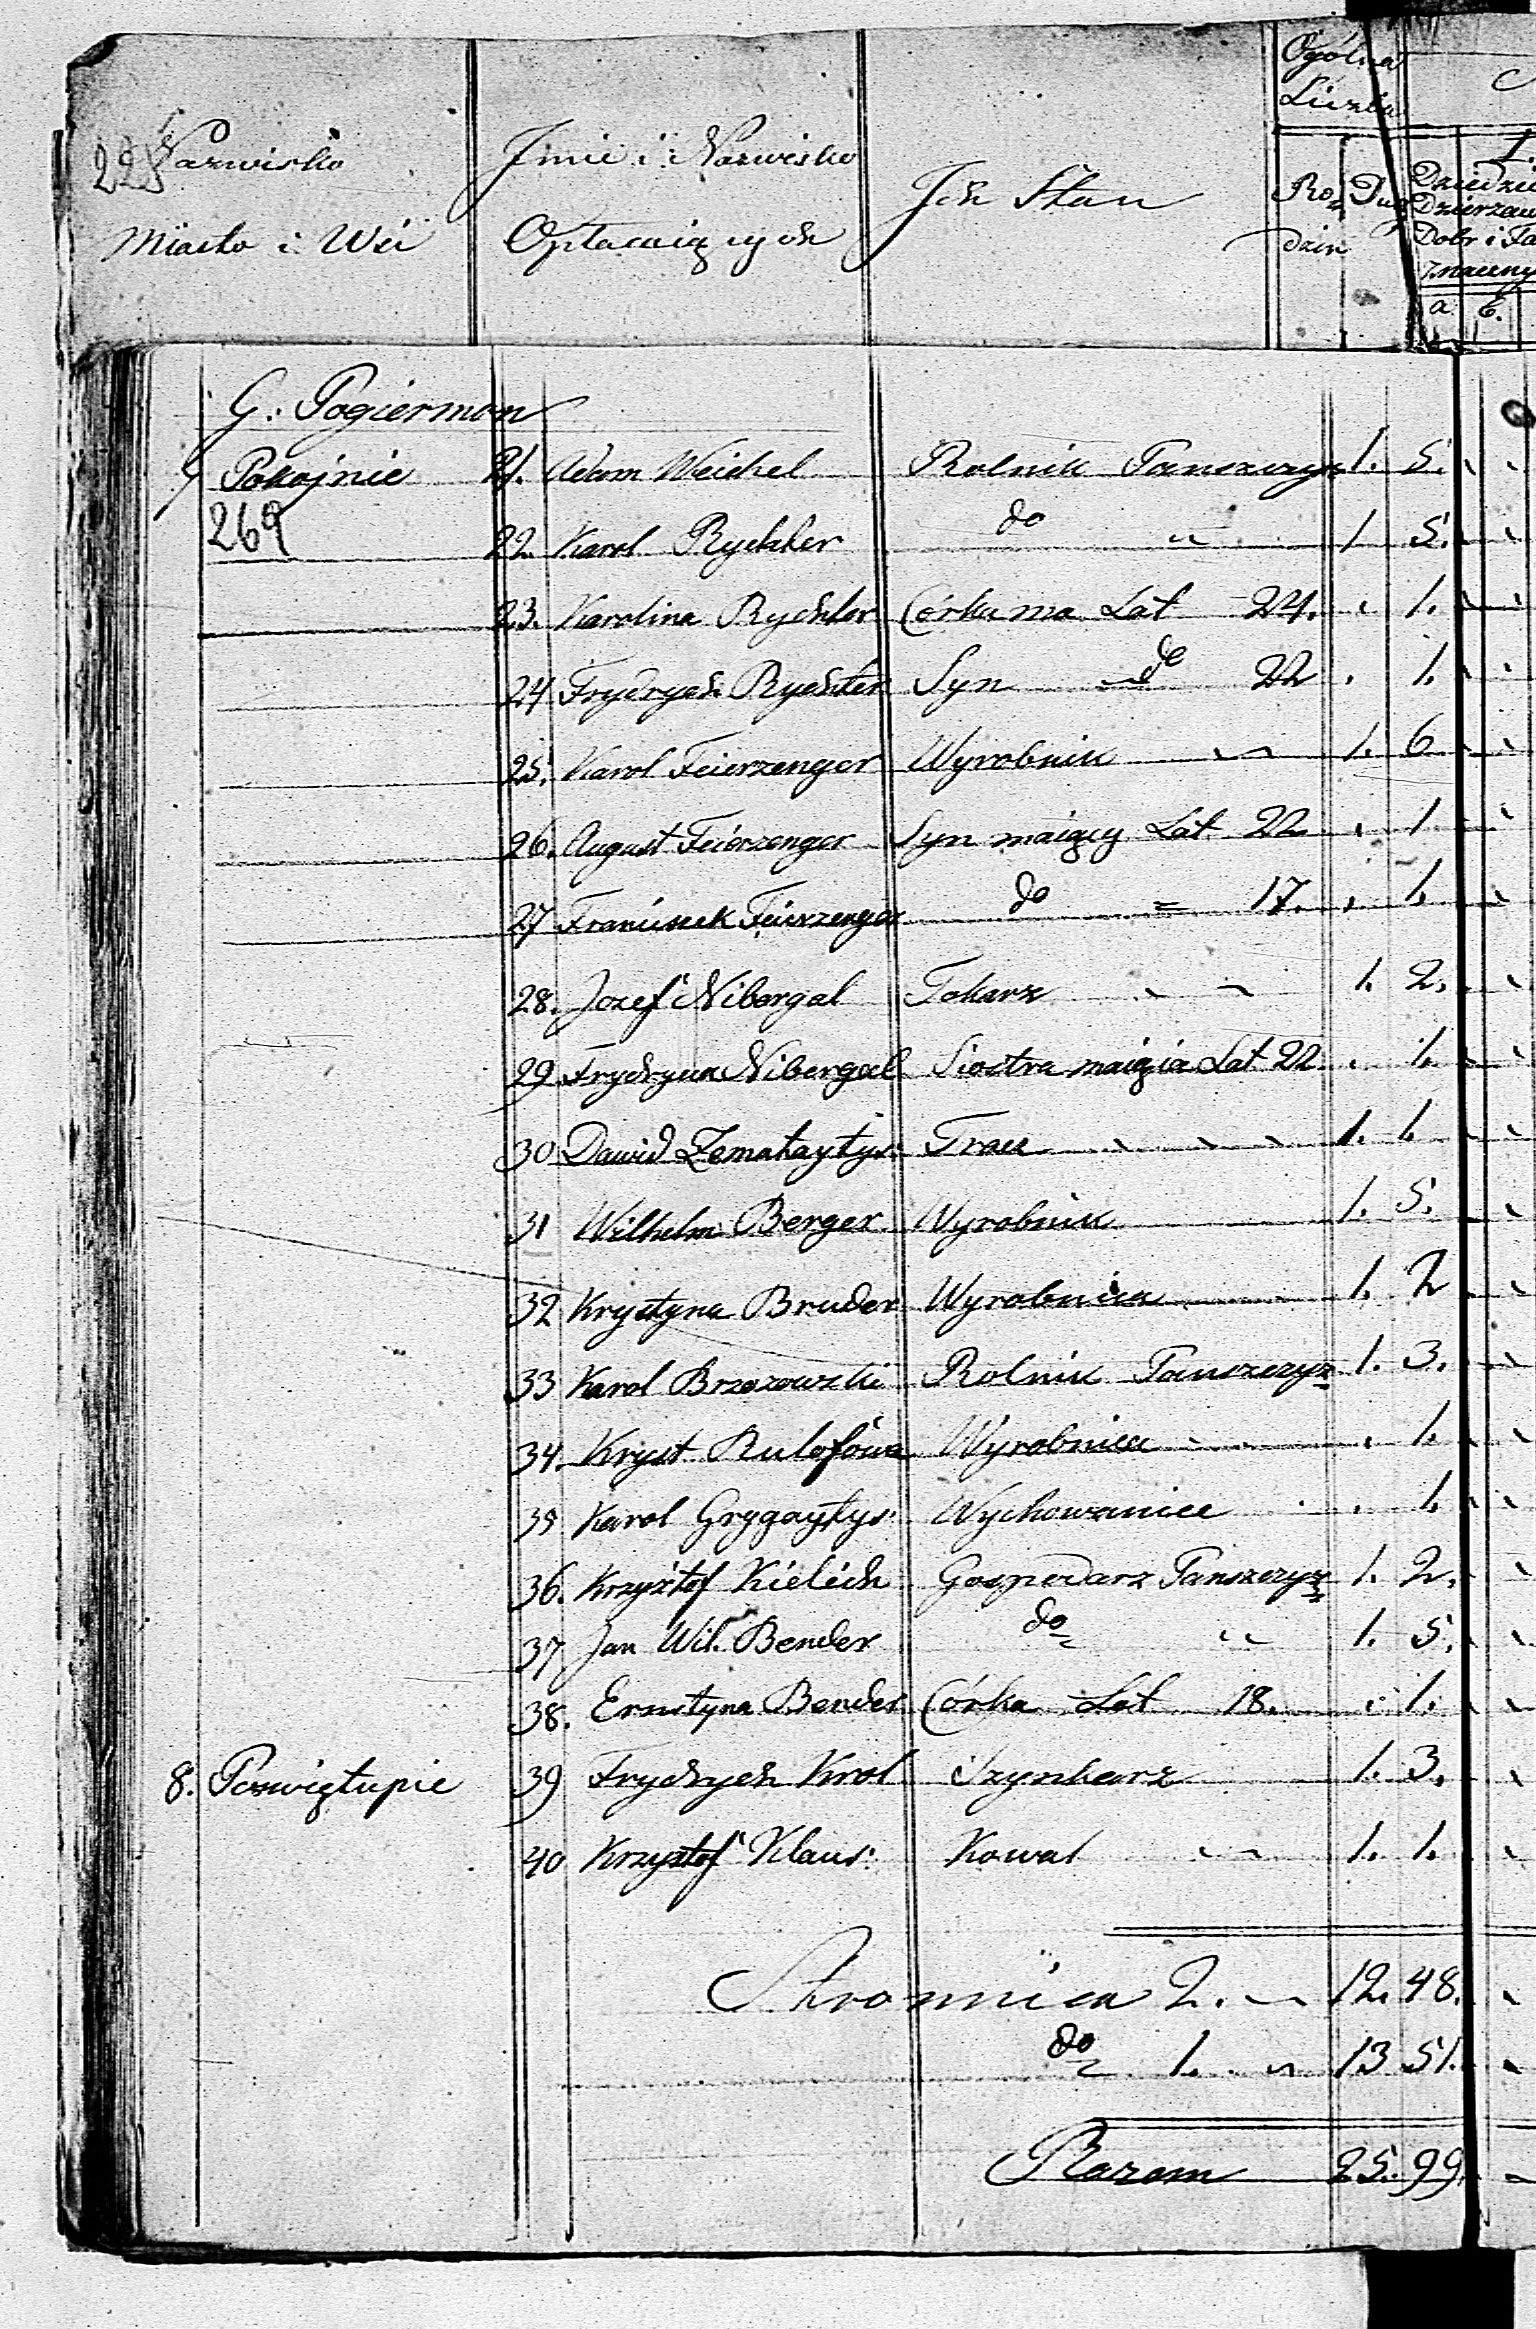 225 Nazwisko
Miasto i Wsi
Jmie i Nazwisko
Opłacaiących
Jch Stan
Ogólna
Liczba
Ro
dzin
Dug
1.
Dziedzic
Dzierzaw
Dobr i Fa
znaczny
a. b.
G. Pogiermon
7 Pokojnie 21. Adam Weichel Rolnik Panszczyz 1. 5.
269
22 Karol Rychter do " 1 5.
23. Karolina Rychter Córka ma Lat 24. . 1.
24 Frydrych Rychter Syn do 22 . 1.
25. Karol Feierzenger Wyrobnik 1. 6
26. August Feierzenger Syn maiący Lat 22 . 1
27 Franciszek Feierzenger do = 17. . 1.
28. Jozef Nibergal Tokarz 1. 2.
29 Frydryca Nibergal Siostra maiąca Lat 22. . 1.
30 Dawid Zemataytys Tracz 1. 1.
31 Wilhelm Berger Wyrobnik 1. 5.
32 Krystyna Bruder Wyrobnica 1. 2
33 Karol Brzozowski Rolnik Panszczyz 1. 3.
34. Kryst. Rulofowa Wyrobnica . 1.
35 Karol Grygaytys Wychowaniec . 1.
36. Krzysztof Kielich Gospodarz Panszczyz 1. 2.
37 Jan Wil. Bender do " 1. 5.
38. Ernstyna Bender Córka Lat 18. . 1.
8. Poswiętupie 39 Frydrych Krol Szynkarz 1. 3.
40 Krzysztof Klaus: Kowal 1. 1.
Stronnica 2. 12. 48.
do 1. 13 51.
Razem 25. 99.